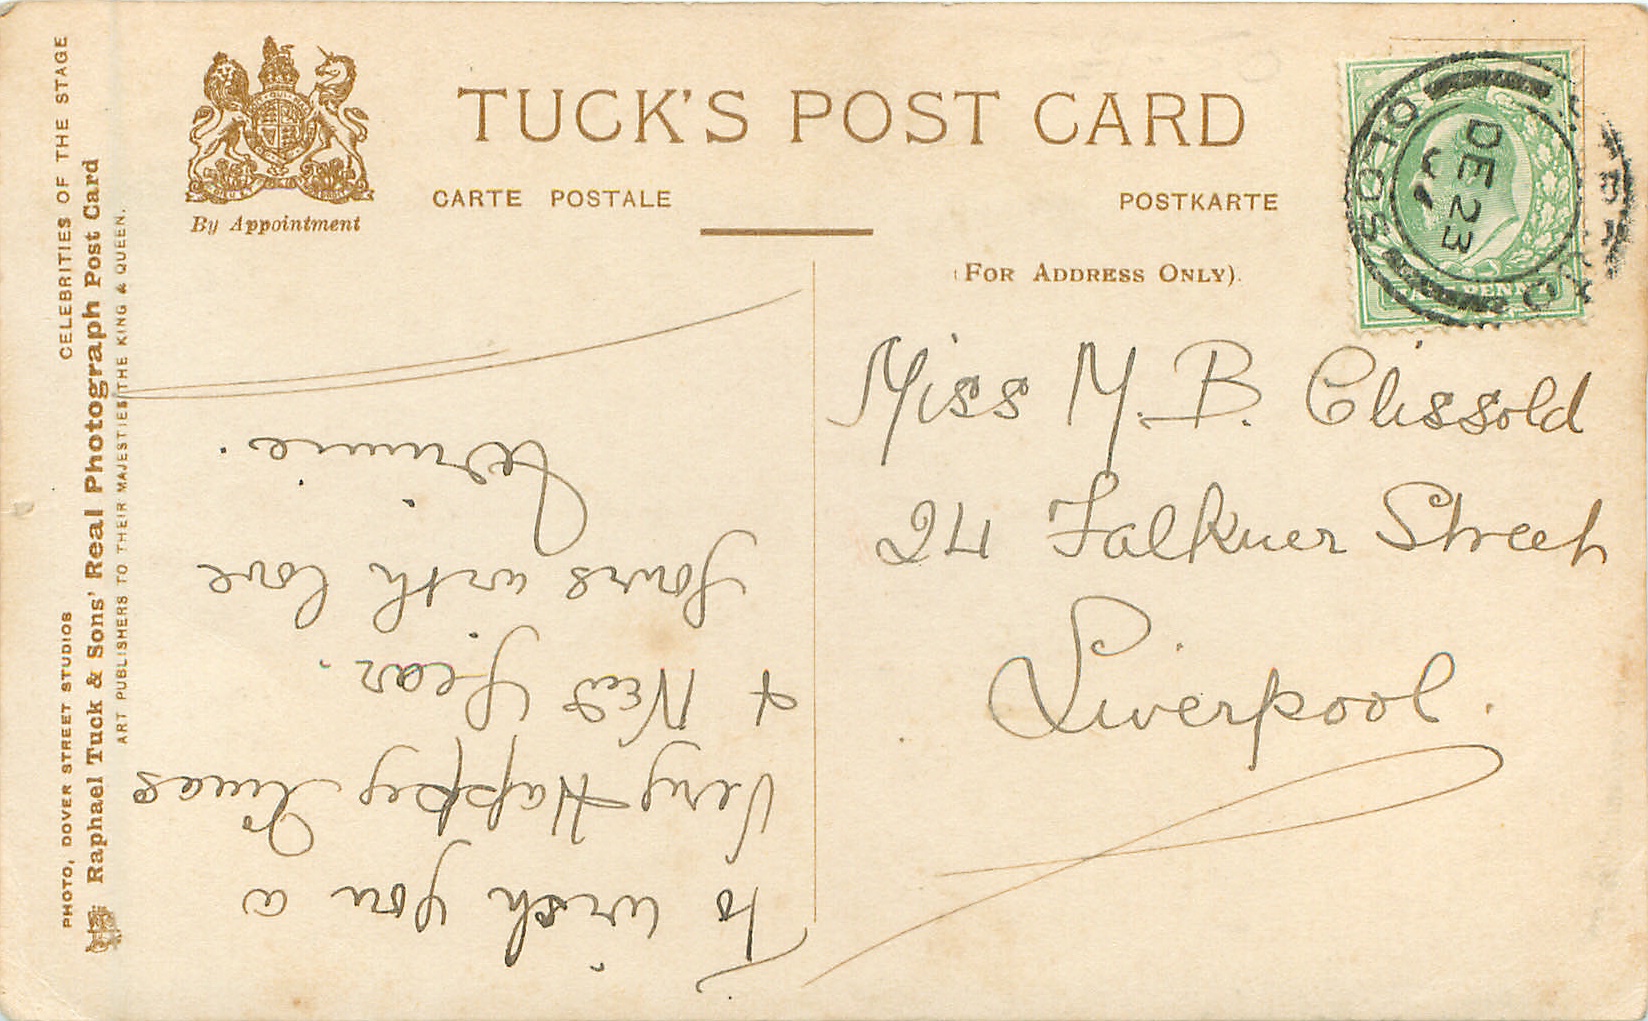 TUCK'S POST CARD
CARTE POSTALE
POSTKARTE
By Appointment
(FOR ADDRESS ONLY).
CELEBRITIES OF THE STAGE
PHOTO, DOVER STREET STUDIOS
Raphael Tuck & Sons' Real Photograph Post Card
ART PUBLISHERS TO THEIR MAJESTIES THE KING & QUEEN.
DE 23
PENNY
To wish you a
Very Happy Xmas
& New Year.
Yours with love
Winnie.
Miss M. B. Clissold
24 Falkner Street
Liverpool.